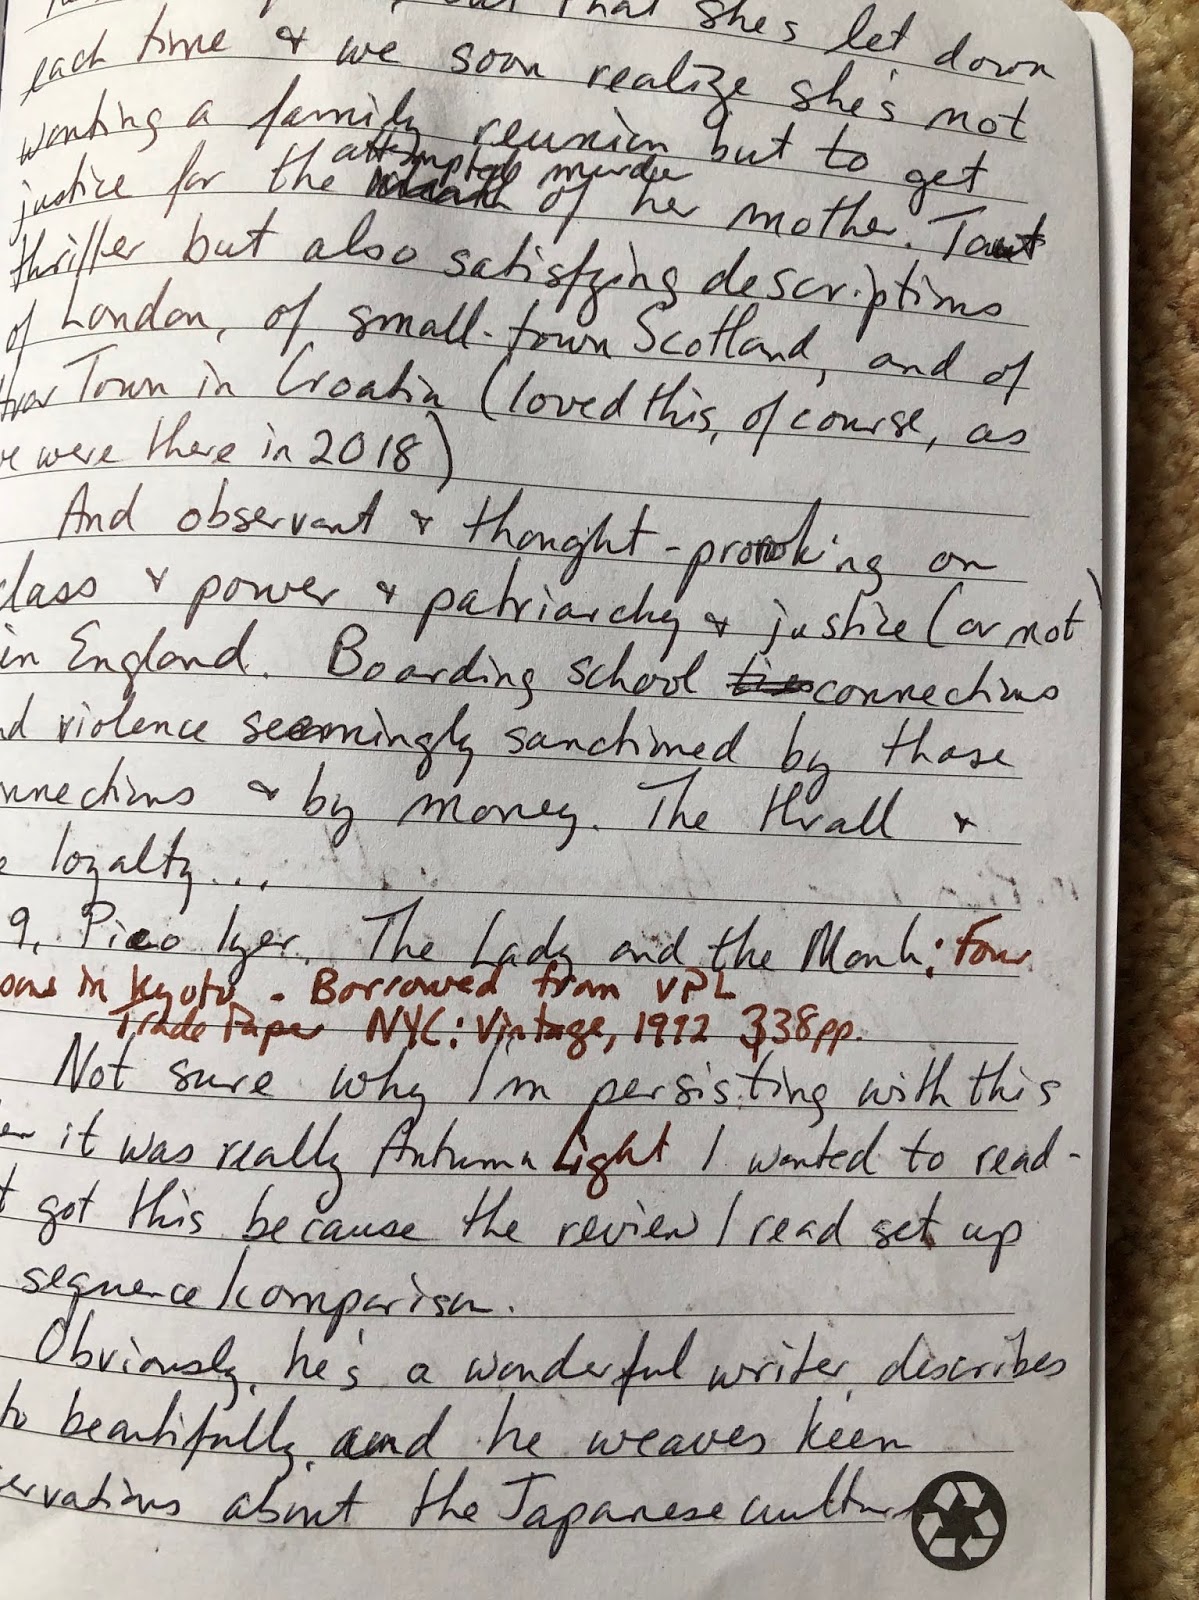 that she's let down
each time & we soon realize she's not
wanting a family reunion but to get
justice for the attempted murder of her mother. Taut
thriller but also satisfying descriptions
of London, of small-town Scotland, and of
Town in Croatia (loved this, of course, as
were there in 2018)
And observant & thought-provoking on
class & power & patriarchy & justice (or not)
in England. Boarding school ties connections
violence seemingly sanctioned by those
connections & by money. The thrall &
loyalty...
9. Pico Iyer. The Lady and the Monk: Four
in Kyoto - Borrowed from VPL
Trade Paper NYC: Vintage, 1992 338pp.
Not sure why I'm persisting with this
it was really Autumn Light I wanted to read -
got this because the review I read set up
sequence/comparison.
Obviously, he's a wonderful writer, describes
beautifully, and he weaves keen
observations about the Japanese culture